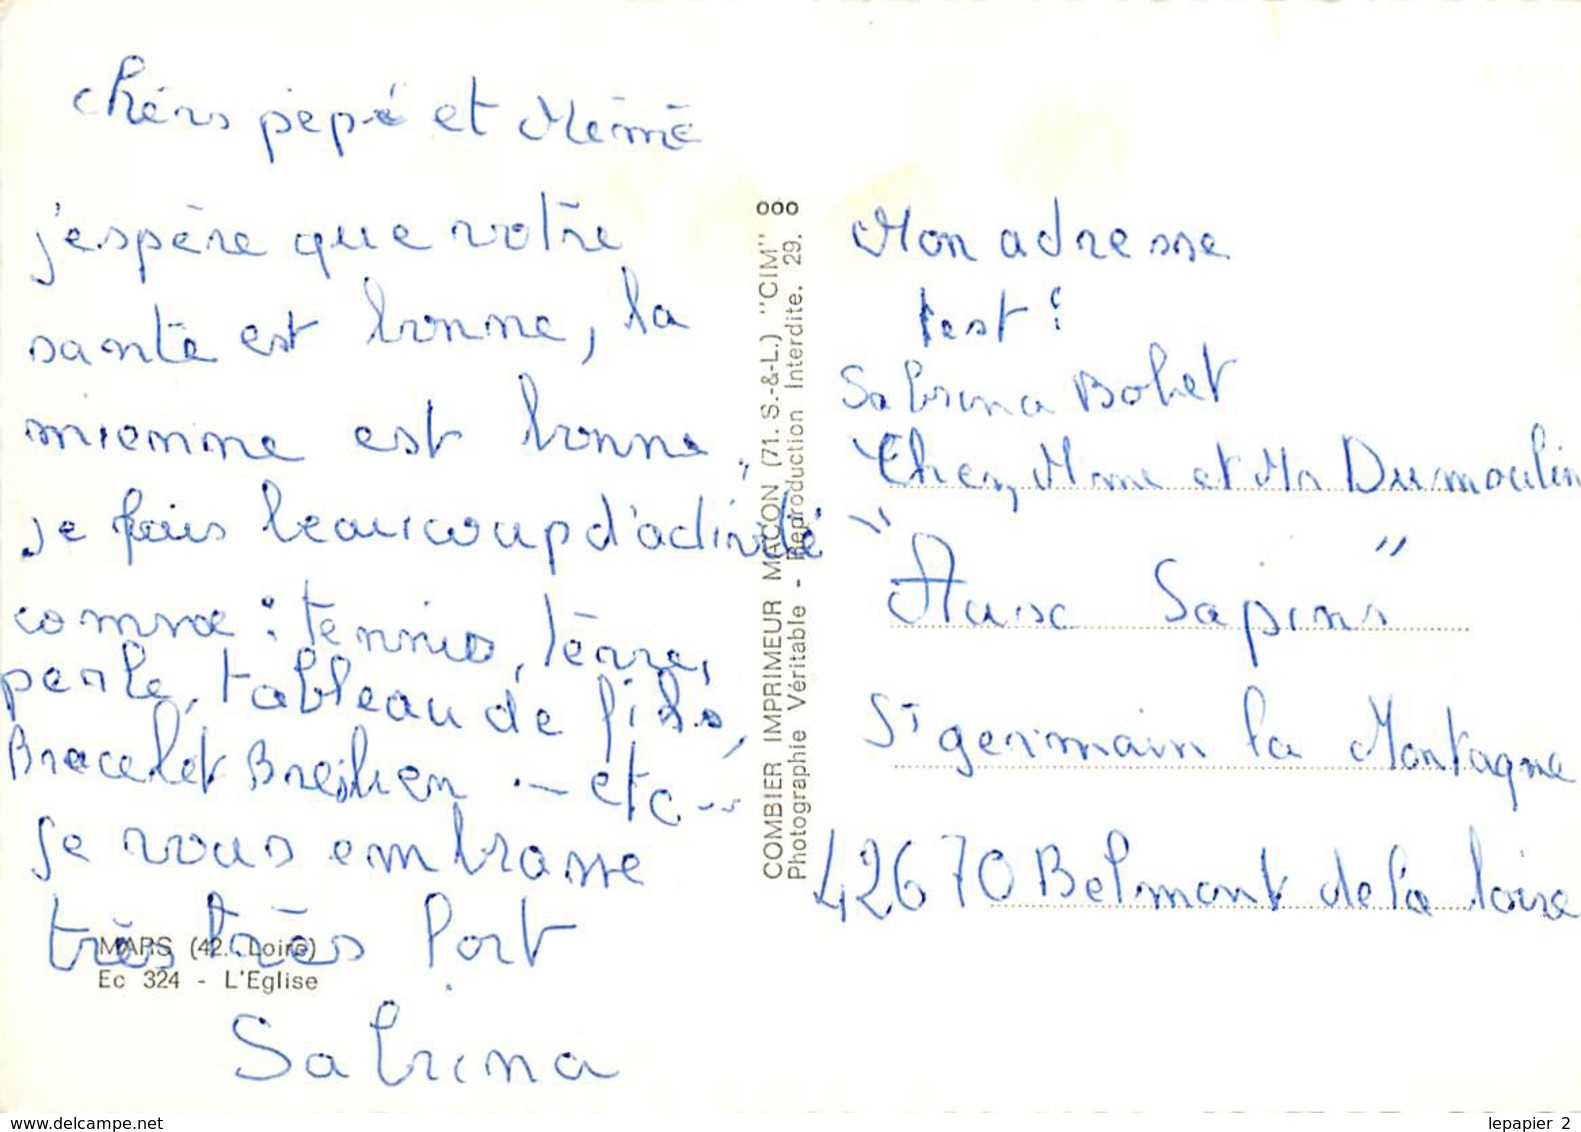 chérs pepé et Mémé
j'espère que votre
santé est bonne, la
mienne est bonne,
je fais beaucoup d'activité
comme : tennis, terre,
perle, tableau de fils,
Bracelet Bresilien ... etc...
je vous embrasse
très très fort
Sabrina
MARS (42. Loire)
Ec 324 - L'Eglise
COMBIER IMPRIMEUR MACON (71. S.-&-L.) "CIM"
Photographie Véritable - Reproduction Interdite. 29.
Mon adresse
est :
Sabrina Bohet
Chez Mme et Mr Dumoulin
"Aux Sapins"
St germain la Montagne
42670 Belmont de la loire
lepapier 2